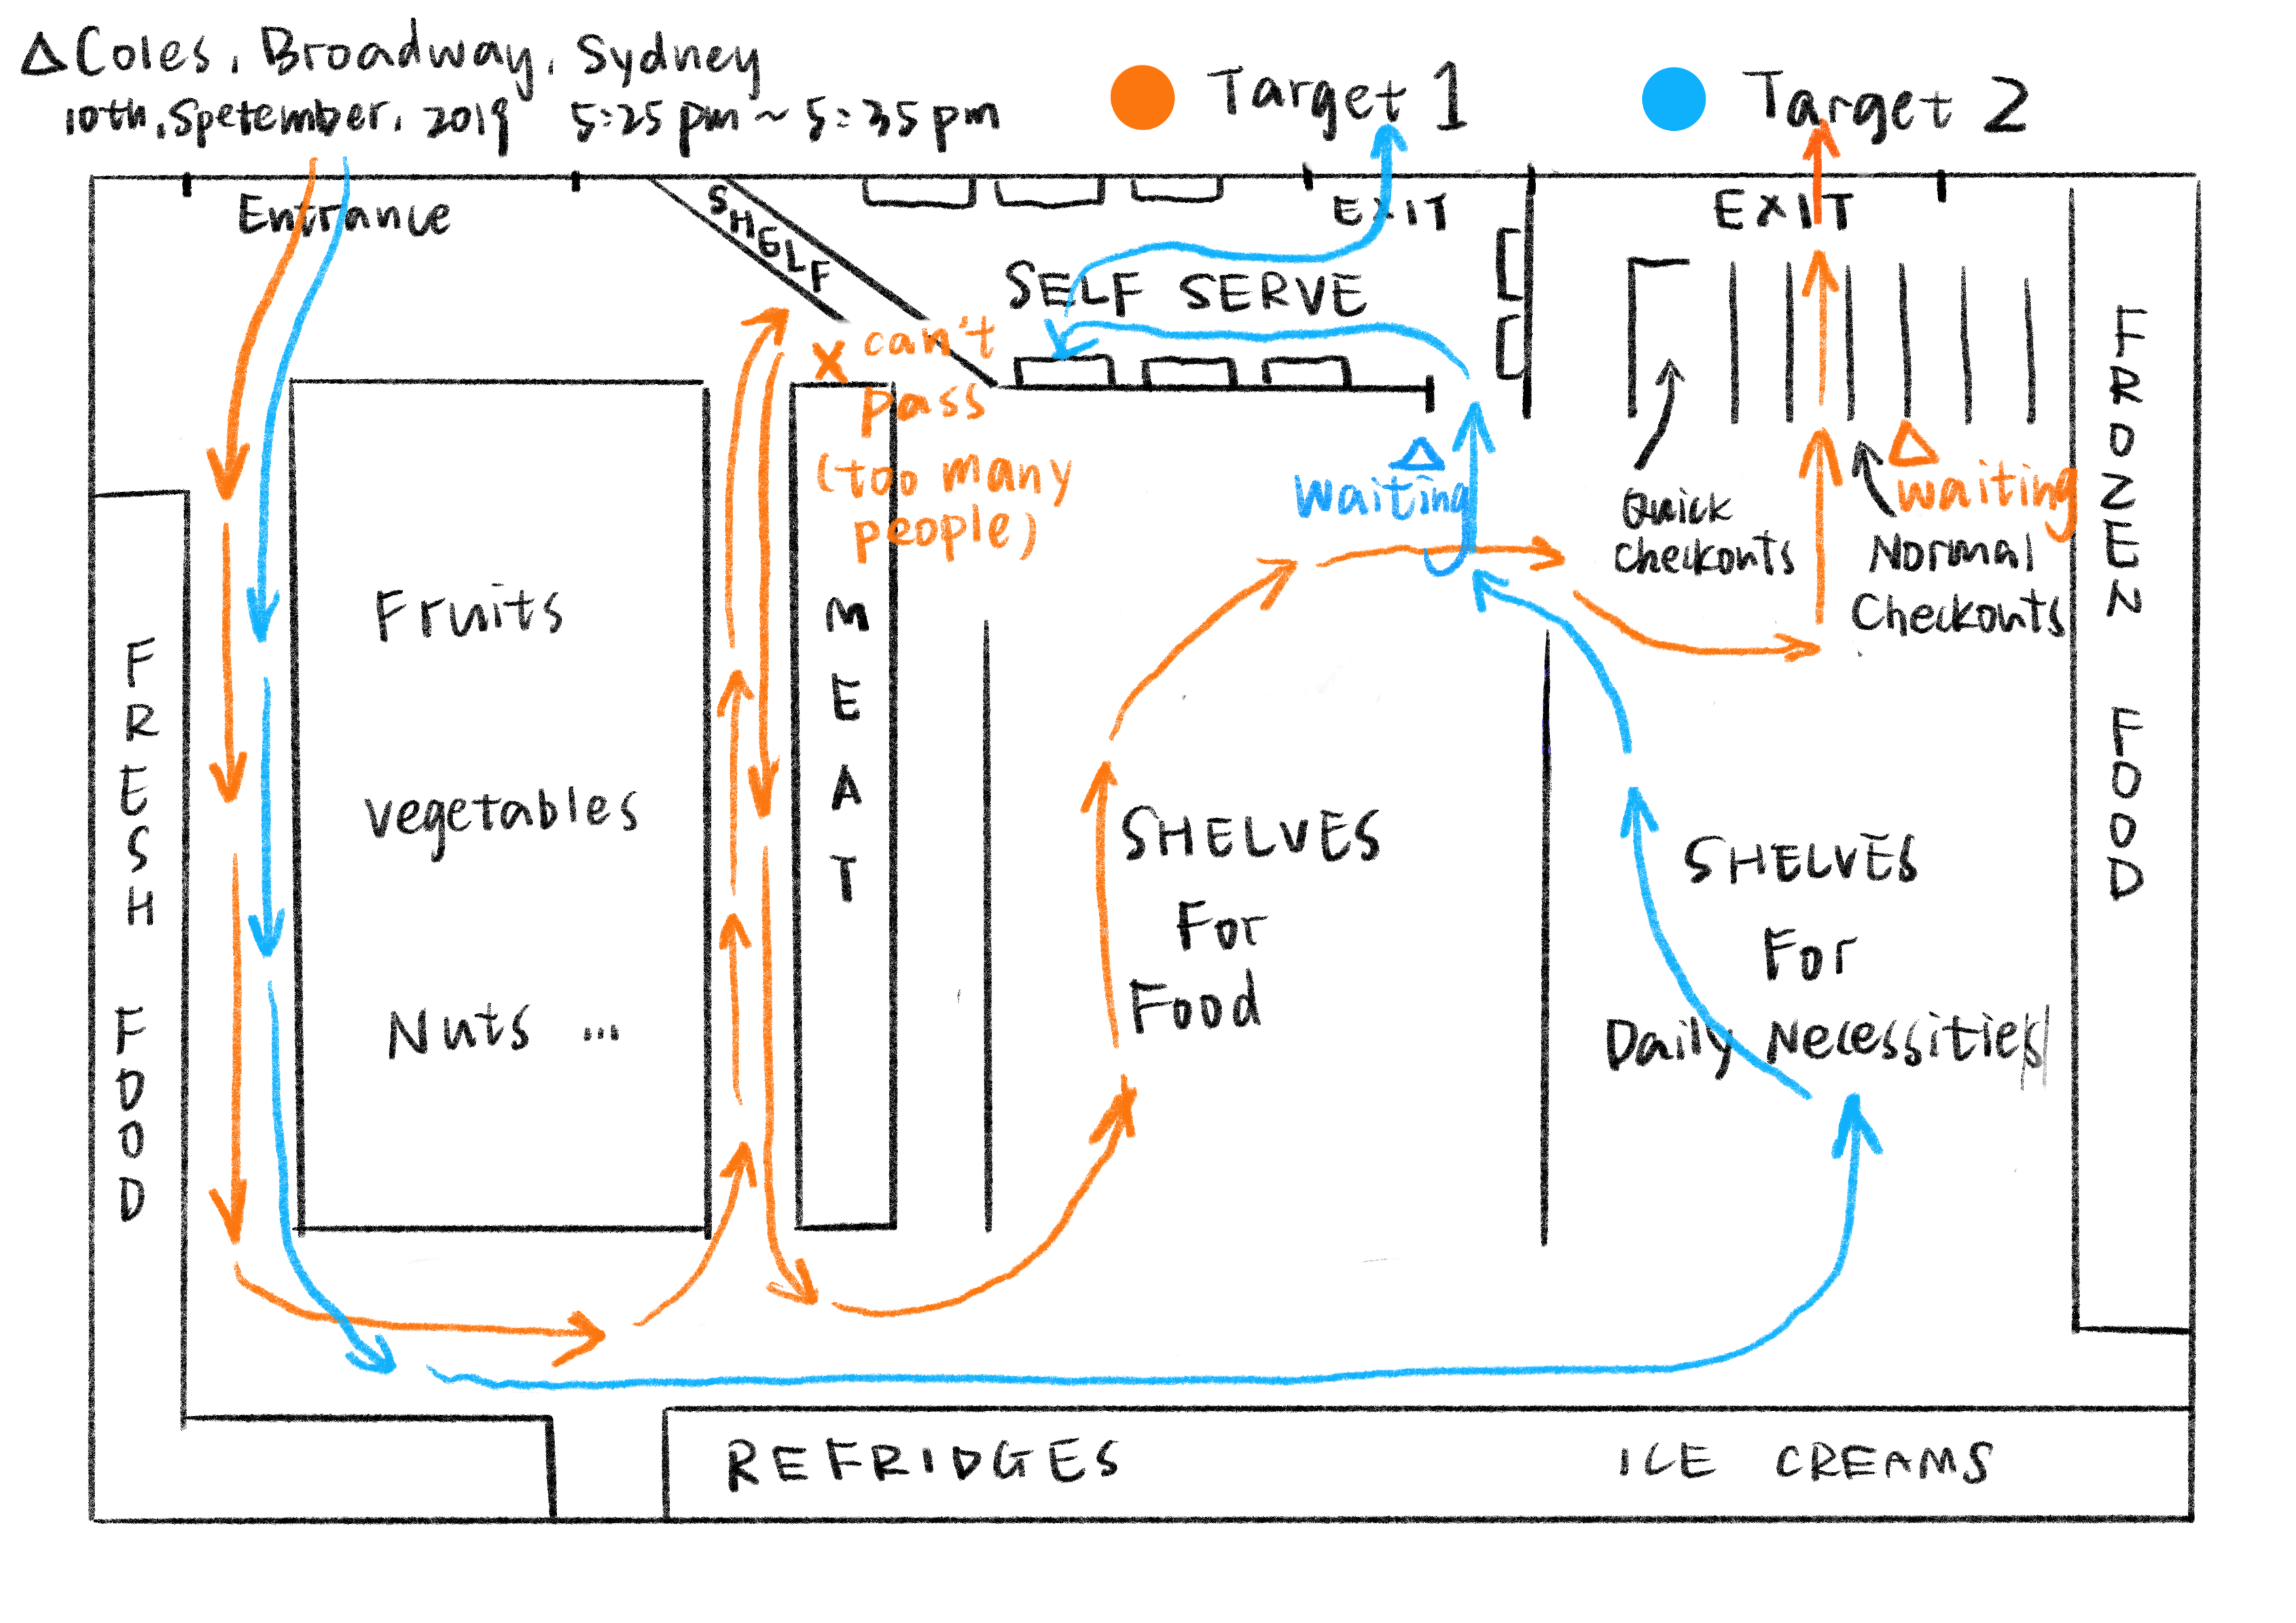 △ Coles, Broadway, Sydney
10th, Spetember, 2019 5:25 pm ~ 5:35 pm
Target 1
Target 2
Entrance
SHELF
EXIT
EXIT
SELF SERVE
X can't
pass
(too many
people)
△
waiting
△
waiting
Quick
Checkonts
Normal
Checkonts
FROZEN FOOD
FRESH FOOD
Fruits
vegetables
Nuts ...
MEAT
SHELVES
For
Food
SHELVES
For
Daily Necessities
REFRIDGES
ICE CREAMS